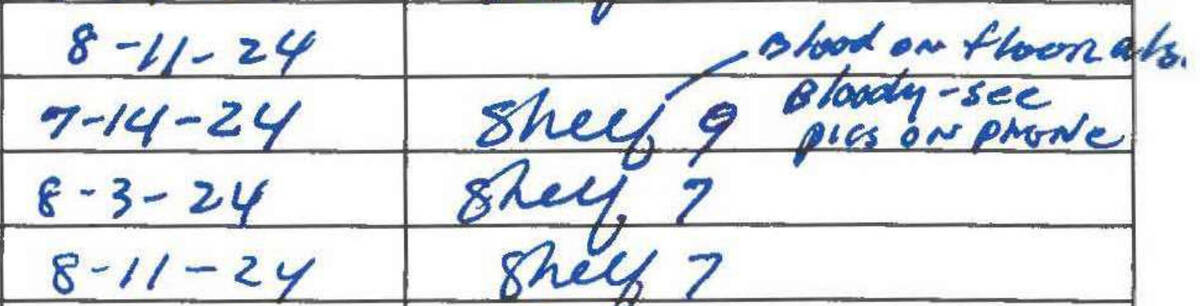 8-11-24
Blood on floor also.
7-14-24 Shelf 9 Bloody-see
pics on phone
8-3-24 Shelf 7
8-11-24 Shelf 7